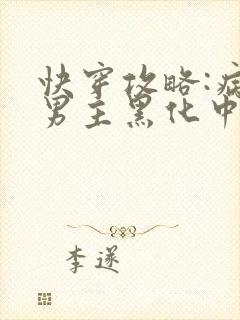 快穿攻略:病
男主黑化中
李遂